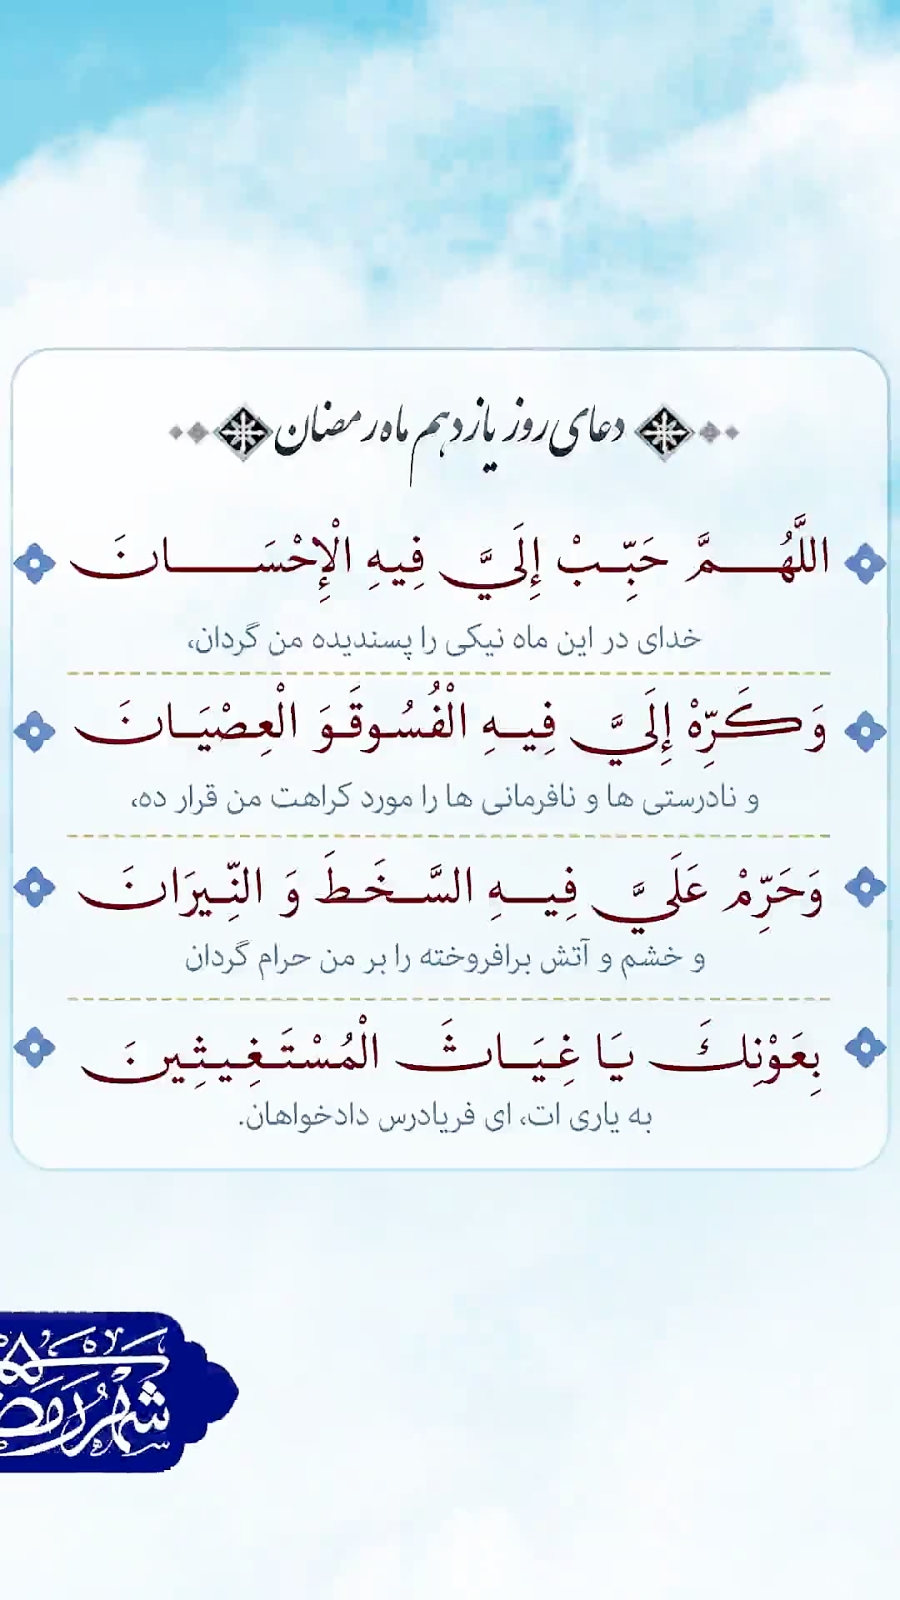 دعای روز یازدهم ماه رمضان
اللَّهُمَّ حَبِّبْ إِلَيَّ فِيهِ الْإِحْسَانَ
خدای در این ماه نیکی را پسندیده من گردان،
وَكَرِّهْ إِلَيَّ فِيهِ الْفُسُوقَوَ الْعِصْيَانَ
و نادرستی ها و نافرمانی ها را مورد کراهت من قرار ده،
وَحَرِّمْ عَلَيَّ فِيهِ السَّخَطَ وَ النِّيرَانَ
و خشم و آتش برافروخته را بر من حرام گردان
بِعَوْنِكَ يَا غِيَاثَ الْمُسْتَغِيثِينَ
به یاری ات، ای فریادرس دادخواهان.
شهر